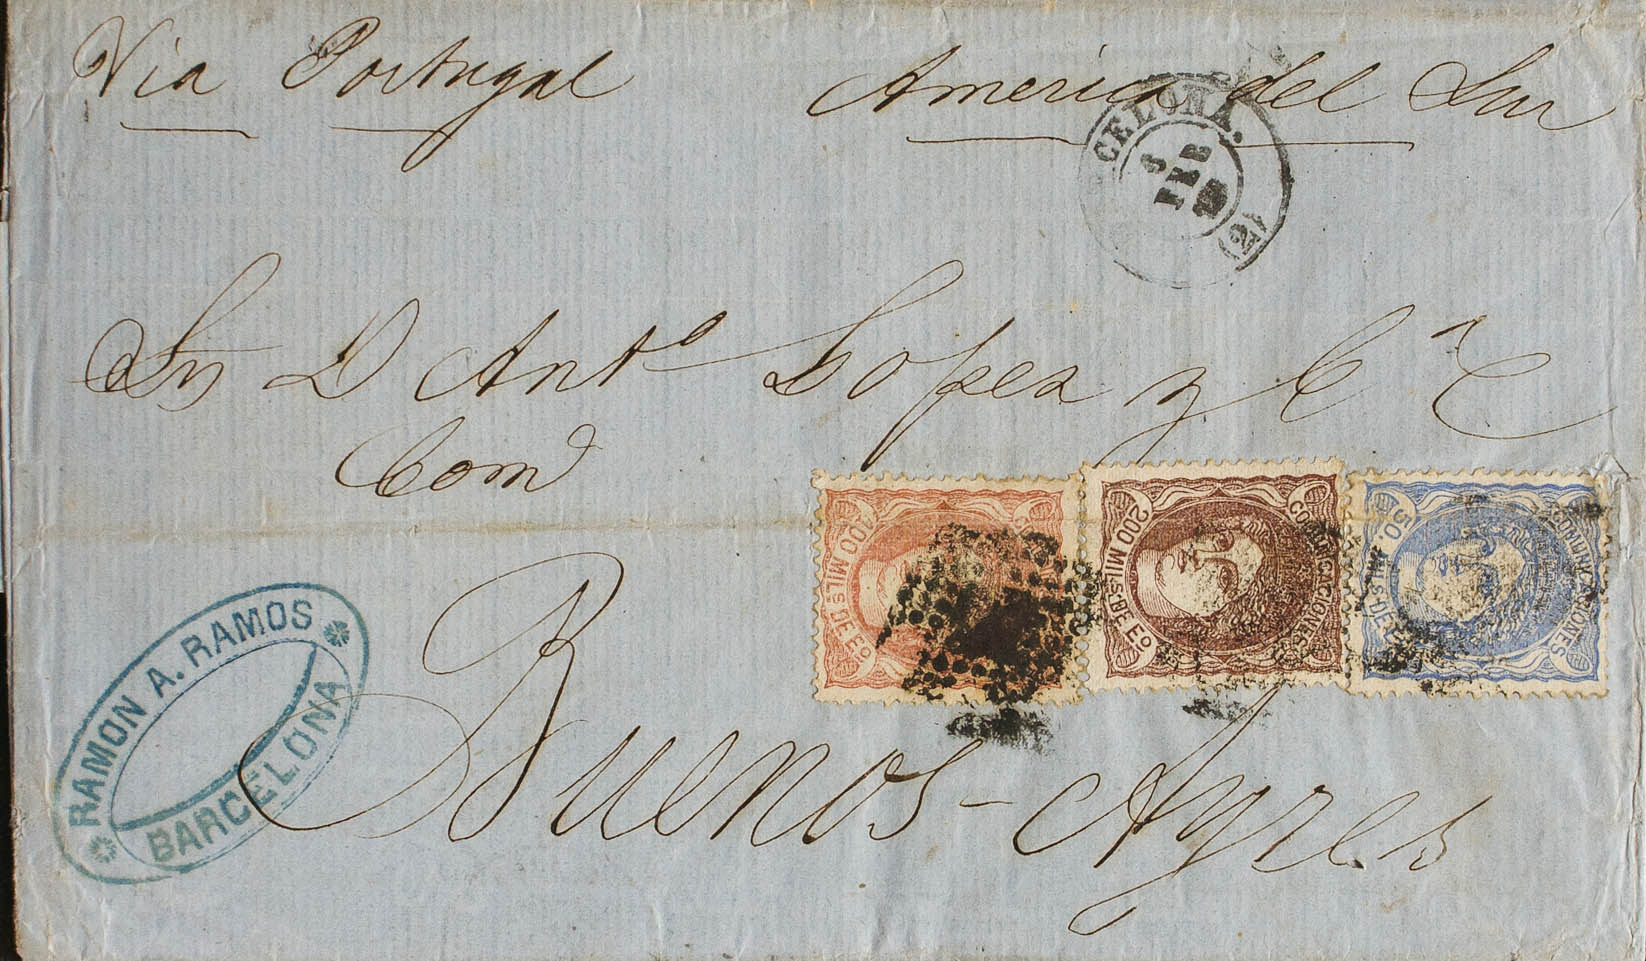 Via Portugal America del Sur
CELONA.
FEB
(2)
Sr D Anto Lopez y Ca
Com
100 MILs DE Eo
200 MILs DE Eo
COMUNICACIONES
50 MILs DE Eo
COMUNICACIONES
RAMON A. RAMOS
BARCELONA
Buenos-Ayres